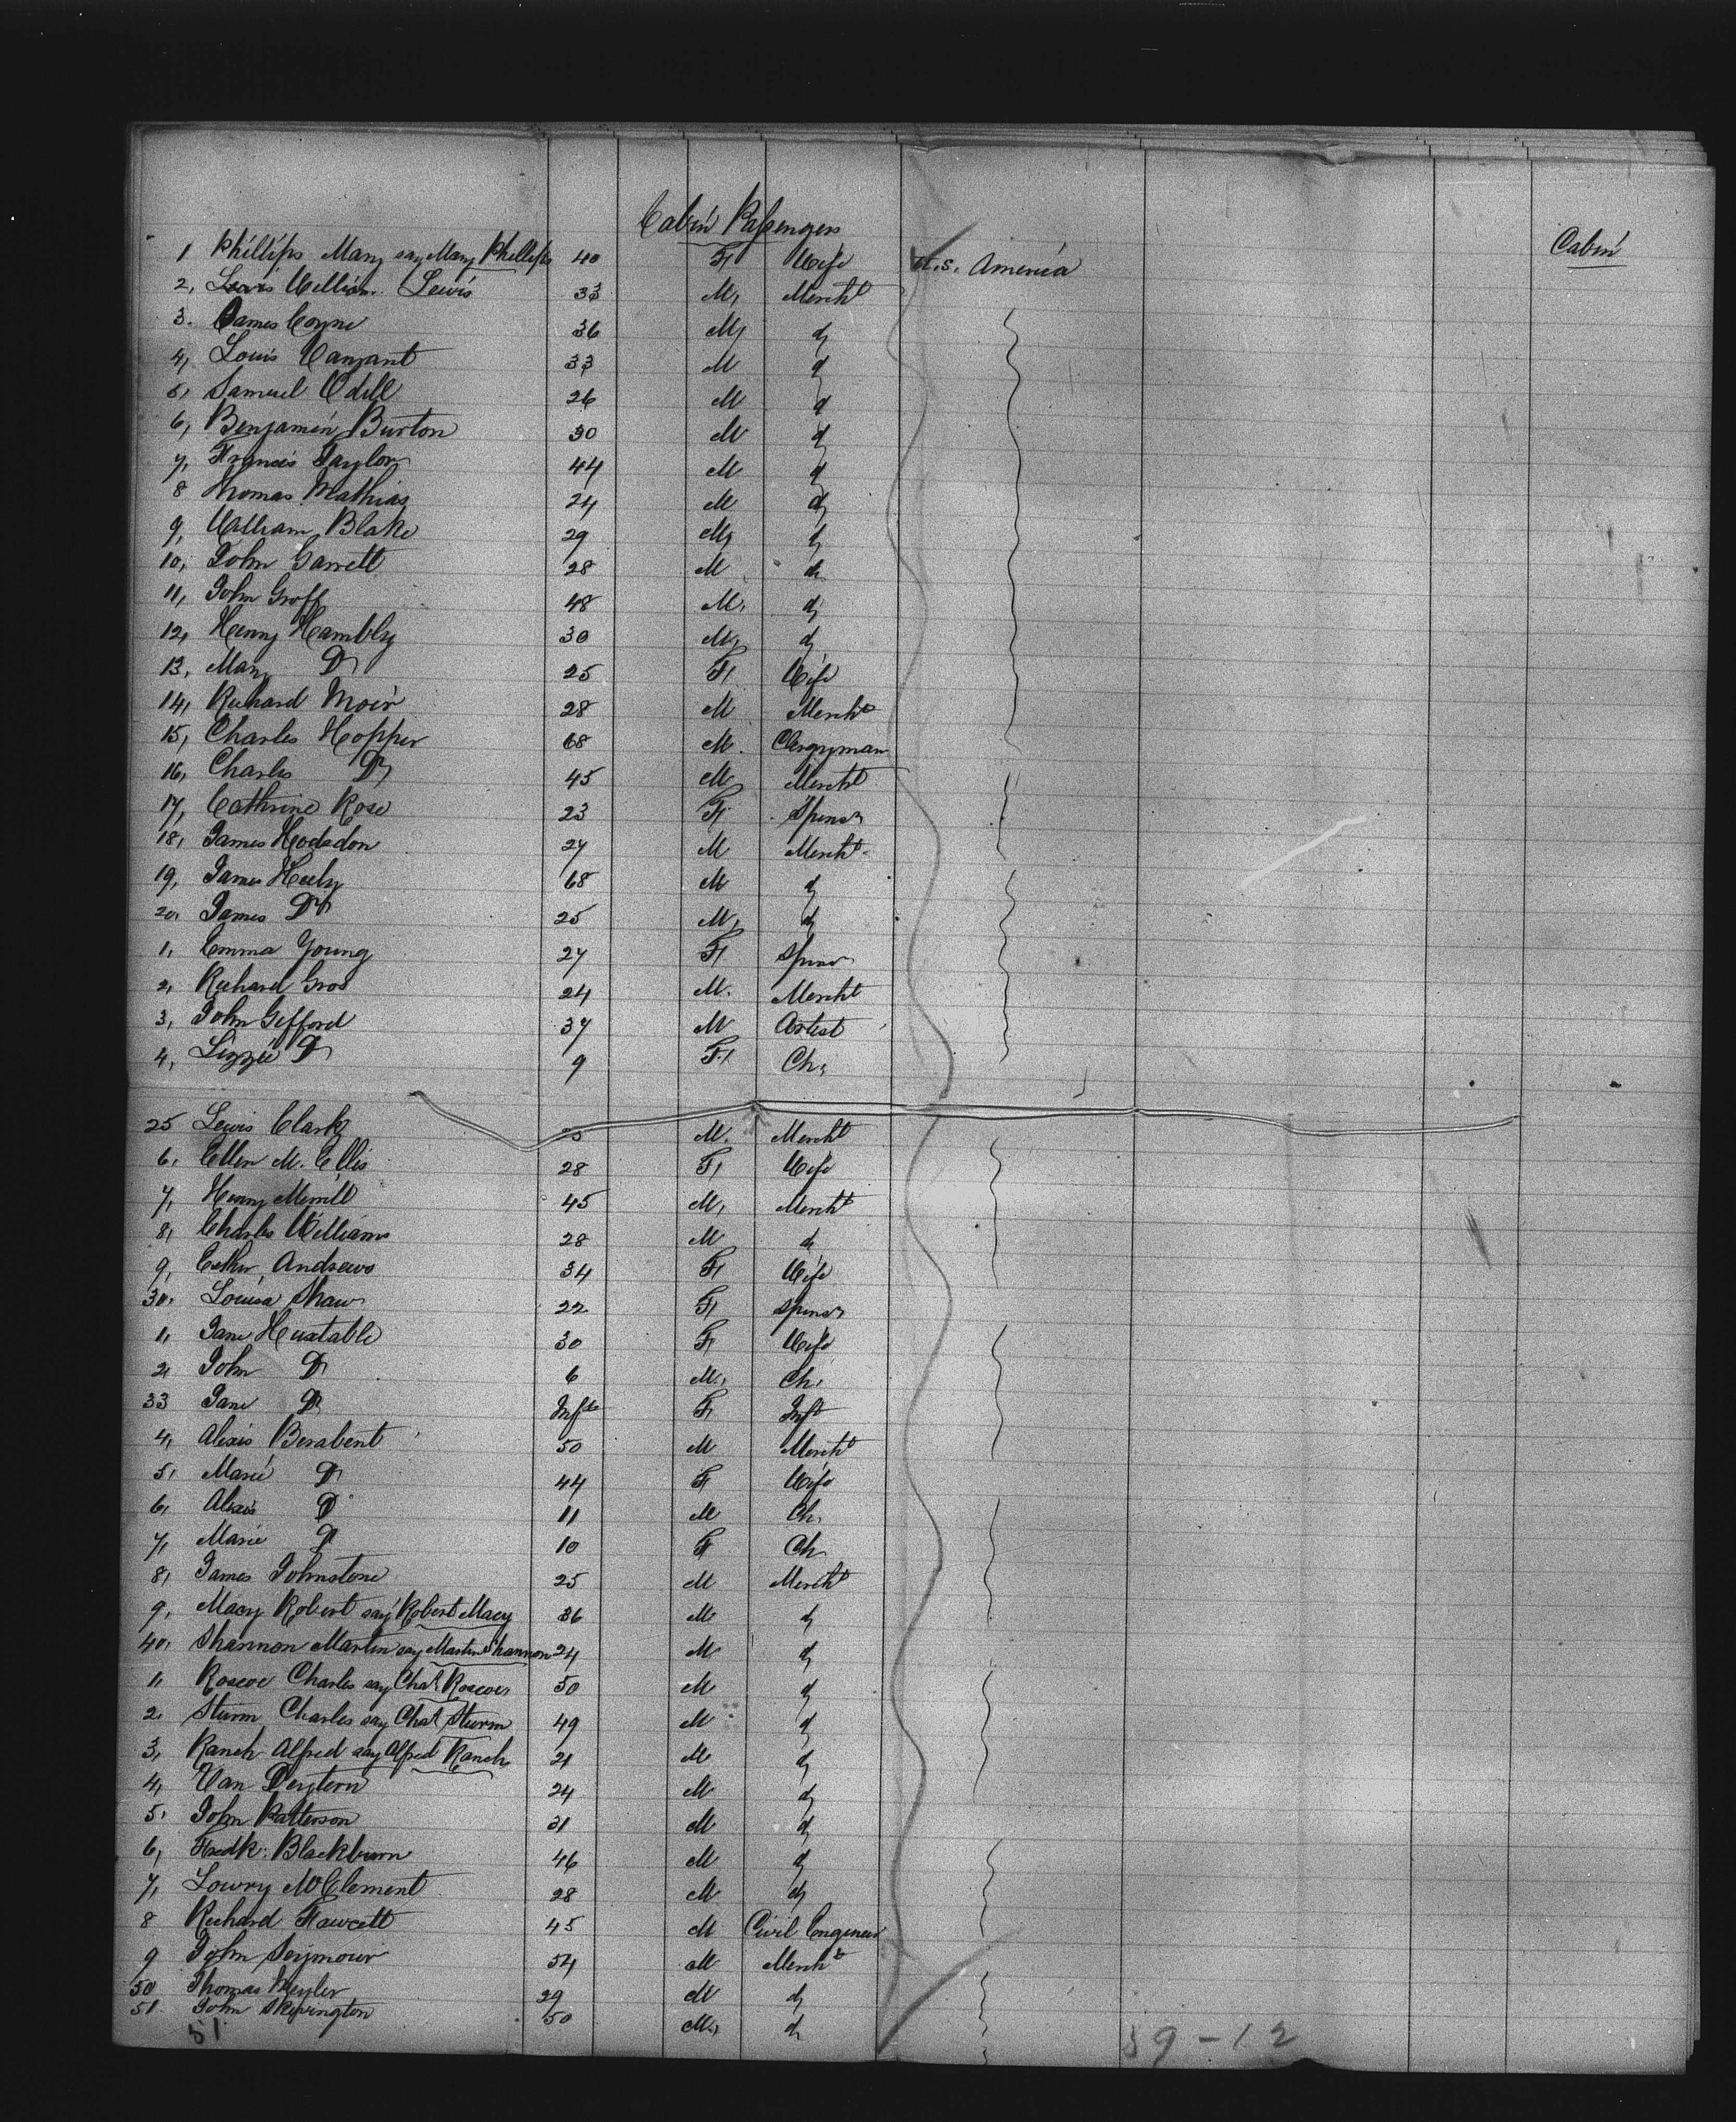 Cabin Passengers
Cabin
1 Phillips Mary say Mary Phillips 40 F Wife U.S. America
2, Lewis William Lewis 33 M, Mercht
3. James Coyne 36 M, d
4, Louis Vanzant 33 M d
5, Samuel Odell 26 M d
6, Benjamin Burton 30 M d
7, Francis Taylor 44 M d
8 Thomas Mathias 24 M d
9, William Blake 29 M, d
10, John Garrett 28 M do
11, John Groff 48 M, d
12, Henry Hambly 30 M, d
13, Mary D 25 F Wife
14, Richard Moir 28 M Mercht
15, Charles Hopper 68 M. Clergyman
16, Charles D 45 M Mercht
17, Cathrine Rose 23 F. Spinsr
18, James Hodsdon 27 M Mercht
19, James Heely 68 M d
20, James Do 25 M, d
1, Emma Young 27 F Spinsr
2, Richard Gros 24 M. Mercht
3, John Gifford 37 M Artist
4, Lizzie D 9 F. Ch,
25 Lewis Clark M. Mercht
6, Ellen M. Ellis 28 F Wife
7, Henry Merrill 45 M, Mercht
8, Charles Williams 28 M do
9, Esther Andrews 34 F Wife
30, Louisa Shaw 22 F Spinsr
1, Jane Huxtable 30 F Wife
2, John D 6 M., Ch,
33 Jane D Inft F Inft
4, Alexis Berabent 50 M Mercht
5, Marie D 44 F Wife
6, Alexis D 11 M Ch.
7, Marie D 10 F Ch
8, James Johnstone 25 M Mercht
9, Macy Robert say Robert Macy 36 M d
40, Shannon Martin say Martin Shannon 24 M d
1, Roscoe Charles say Chas Roscoe 50 M d
2, Sturm Charles say Chas Sturm 49 M d
3, Ranch Alfred say Alfred Ranch 21 M d
4, Van Deytern 24 M d
5, John Patterson 31 M d
6, Fredk. Blackburn 46 M d
7, Lowry McClement 28 M d
8 Richard Fawcett 45 M Civil Engineer
9 John Seymour 54 M Mercht
50 Thomas Meyler 29 M d
51 John Skevington 50 M, d
51
39-12